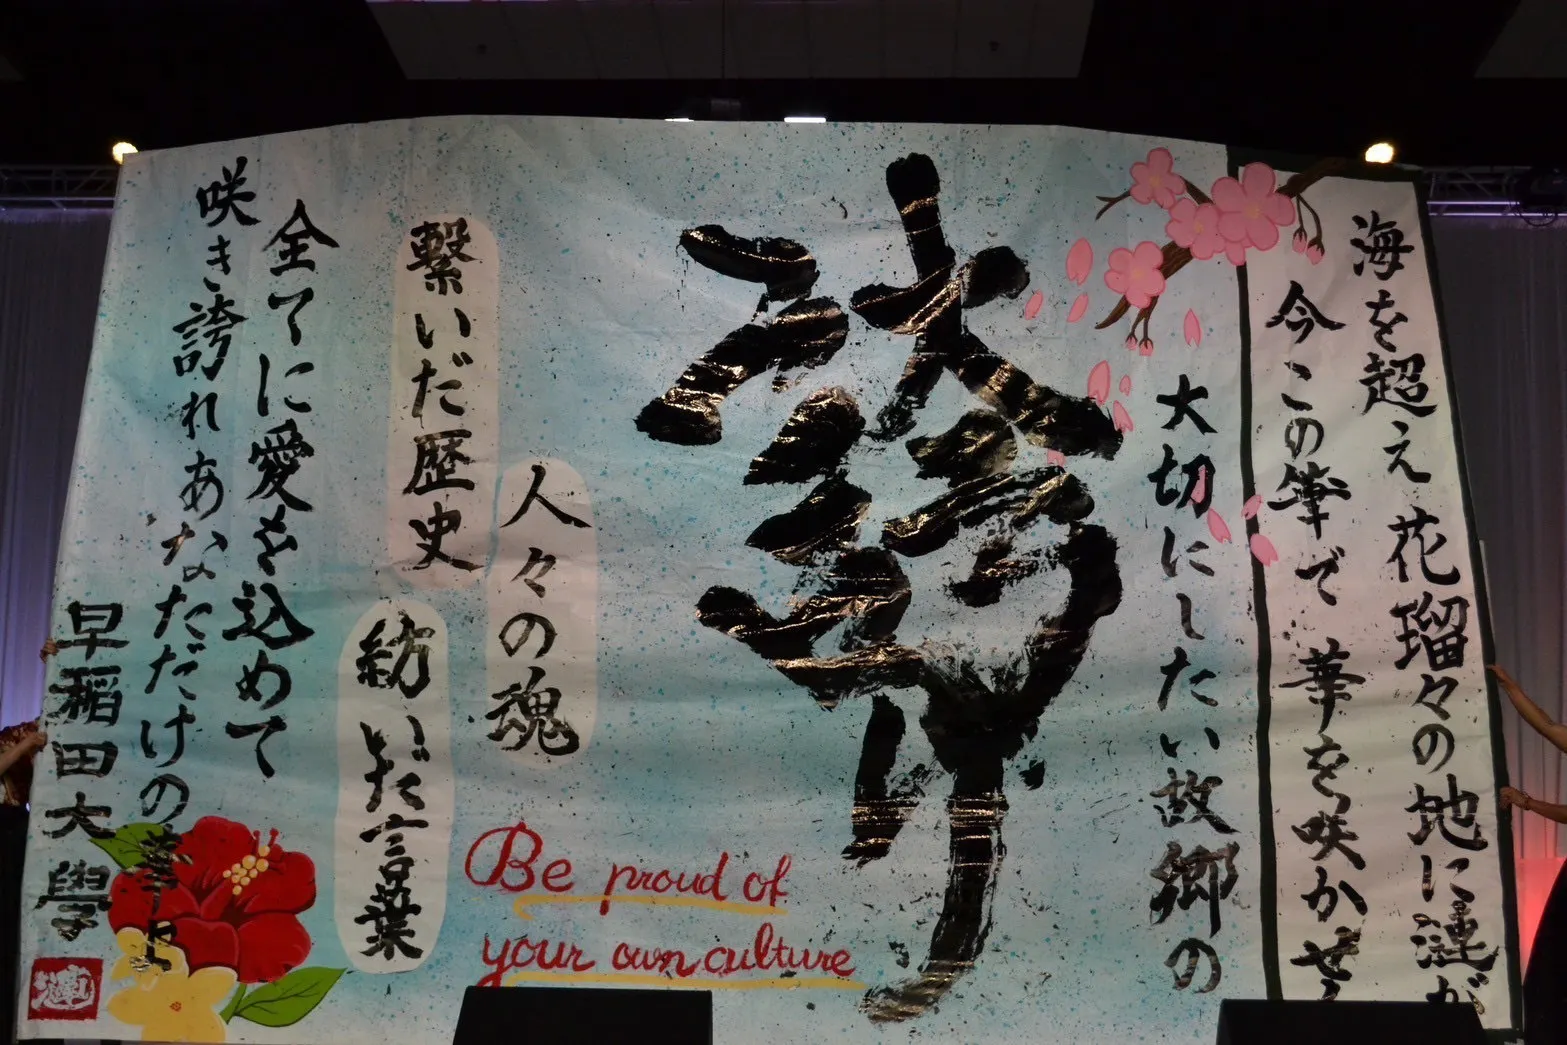 海を超え花瑠々の地に漣が
今この筆で華を咲かせ
大切にしたい故郷の
誇
人々の魂
繋いだ歴史
紡いだ言葉
全てに愛を込めて
咲き誇れあなただけの華
早稲田大學
Be proud of
your own culture